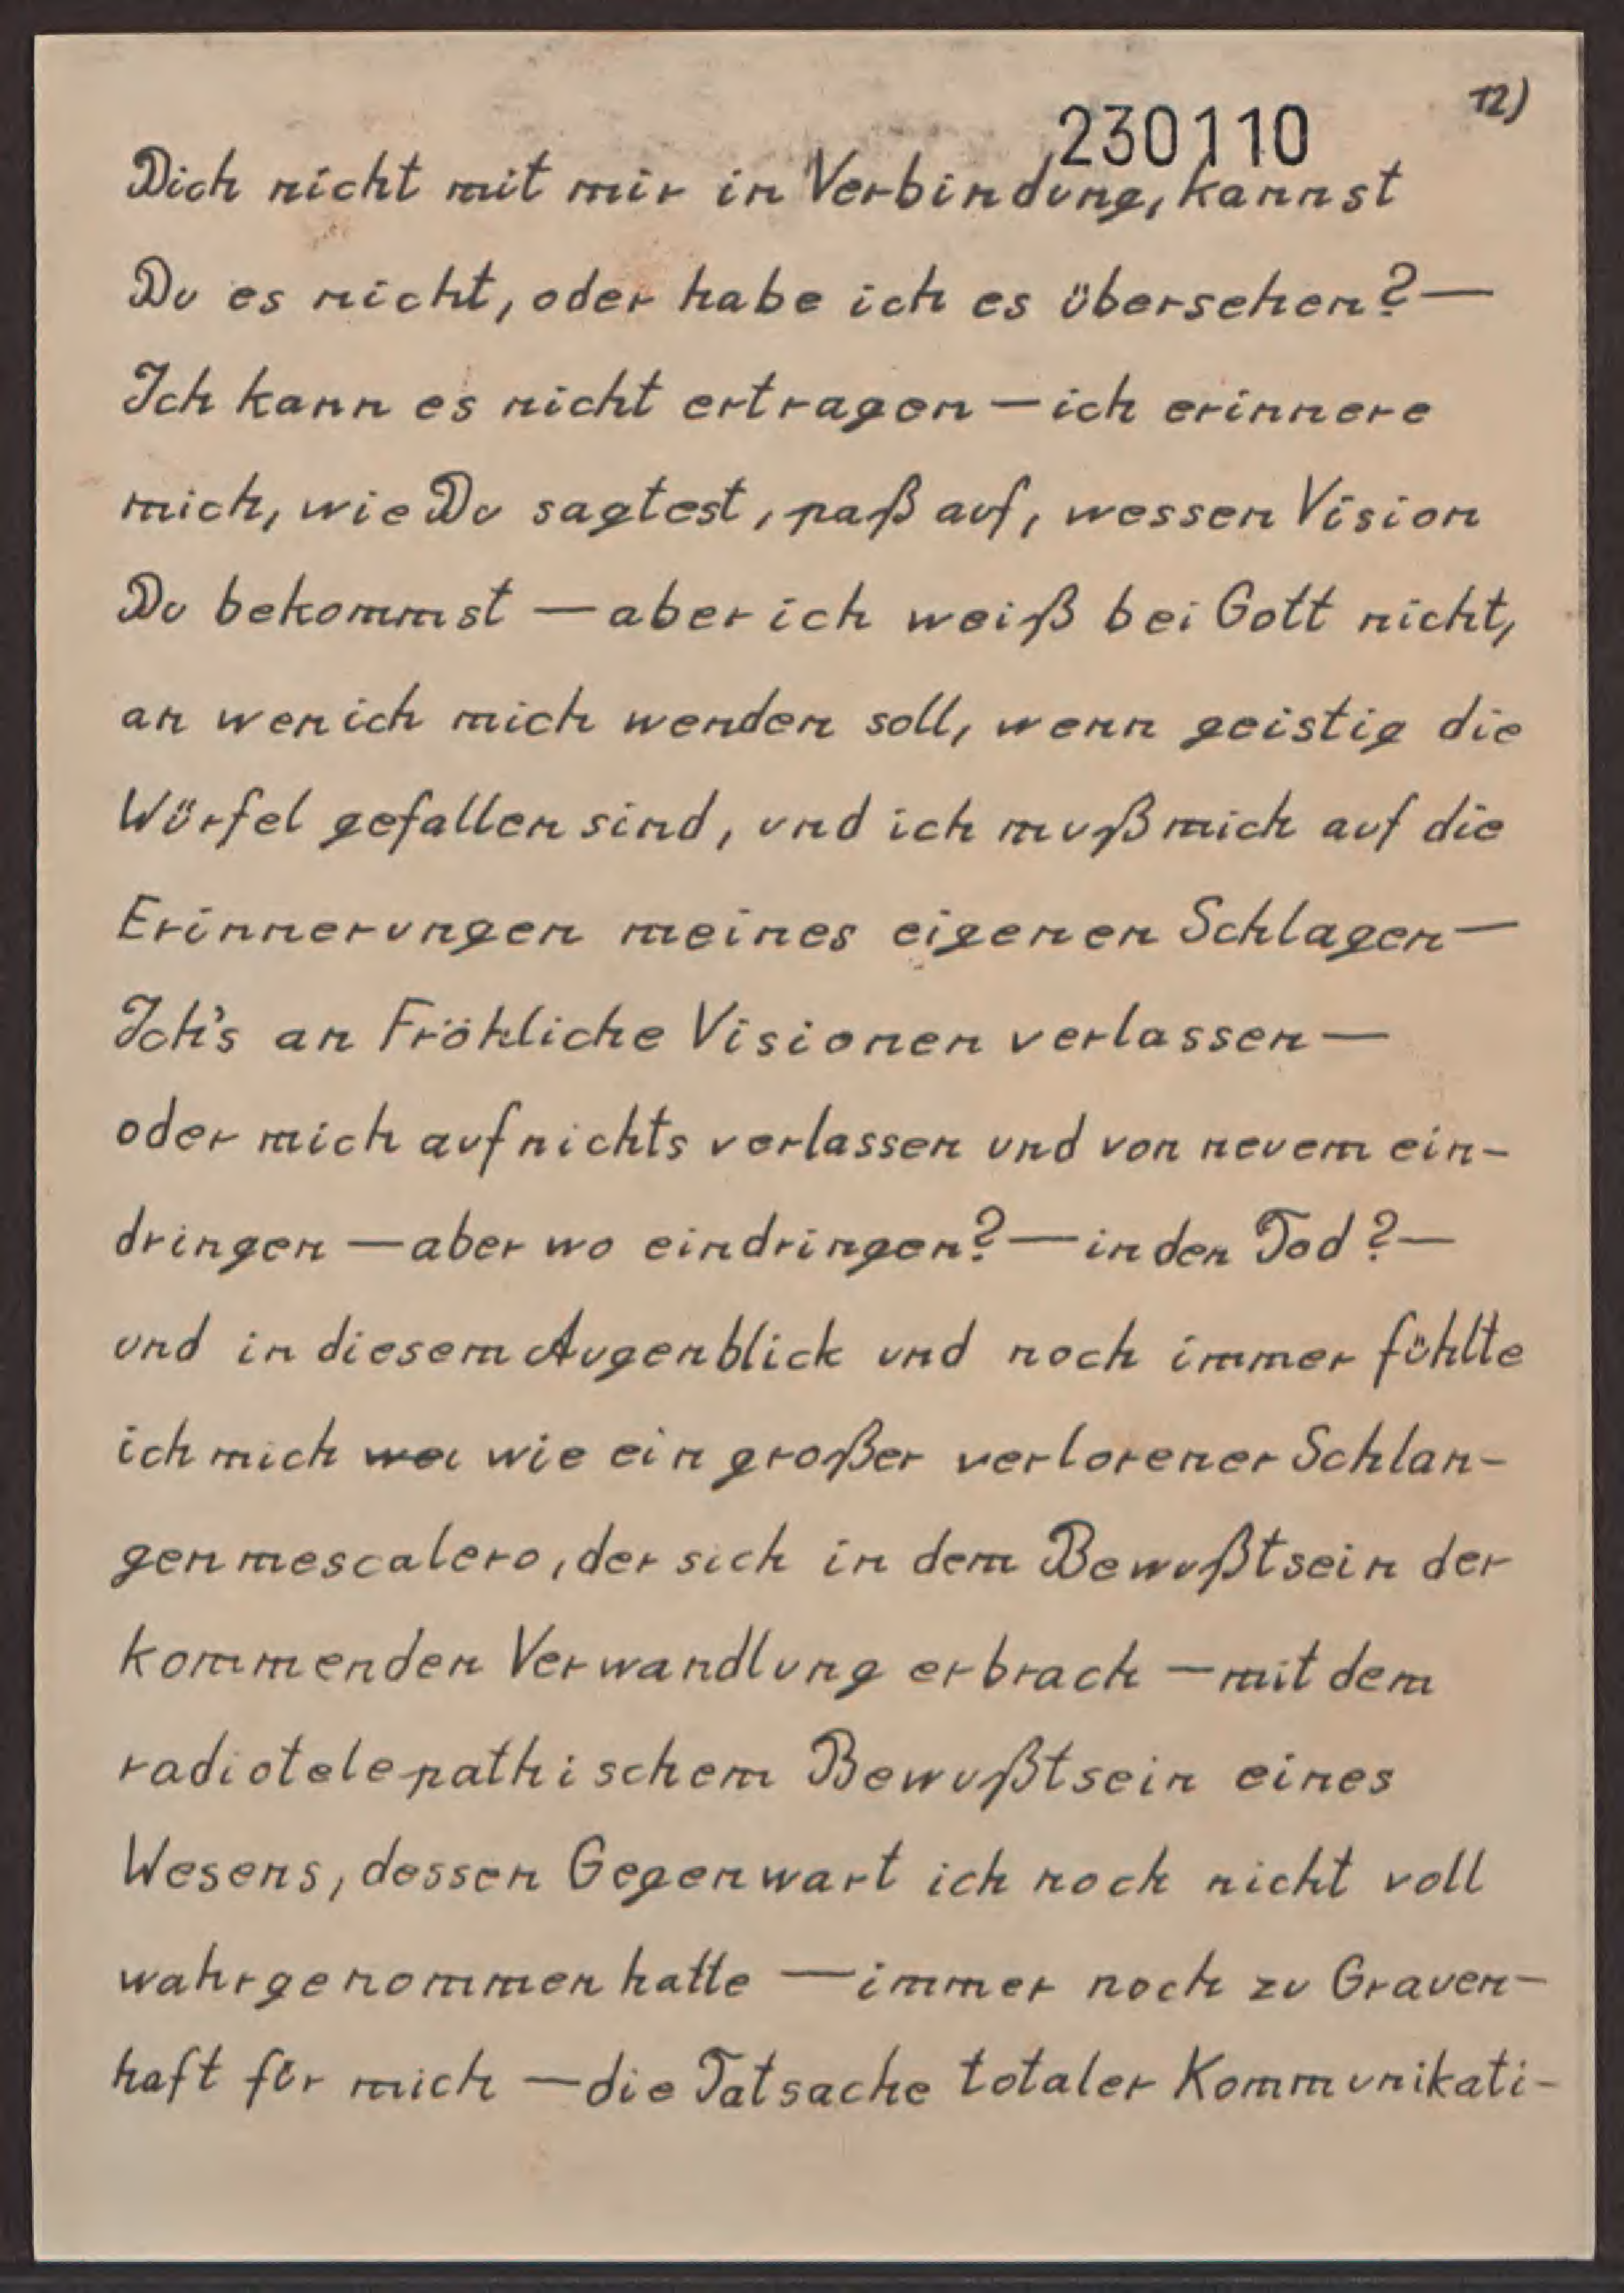 12)
230110
Dich nicht mit mir in Verbindung, kannst
Du es nicht, oder habe ich es übersehen? —
Ich kann es nicht ertragen — ich erinnere
mich, wie Du sagtest, paß auf, wessen Vision
Du bekommst — aber ich weiß bei Gott nicht,
an wen ich mich wenden soll, wenn geistig die
Würfel gefallen sind, und ich muß mich auf die
Erinnerungen meines eigenen Schlagen —
Ich's an Fröhliche Visionen verlassen —
oder mich auf nichts verlassen und von neuem ein-
dringen — aber wo eindringen? — in den Tod? —
und in diesem Augenblick und noch immer fühlte
ich mich wei wie ein großer verlorener Schlan-
genmescalero, der sich in dem Bewußtsein der
kommenden Verwandlung erbrach — mit dem
radiotelepathischem Bewußtsein eines
Wesens, dessen Gegenwart ich noch nicht voll
wahrgenommen hatte — immer noch zu Grauen-
haft für mich — die Tatsache totaler Kommunikati-